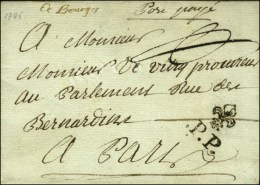 1786
De Bourges
Port payé
A Monsieur
Monsieur De vitry procureur
au Parlement Rue des
Bernardins
P.P.
A Paris